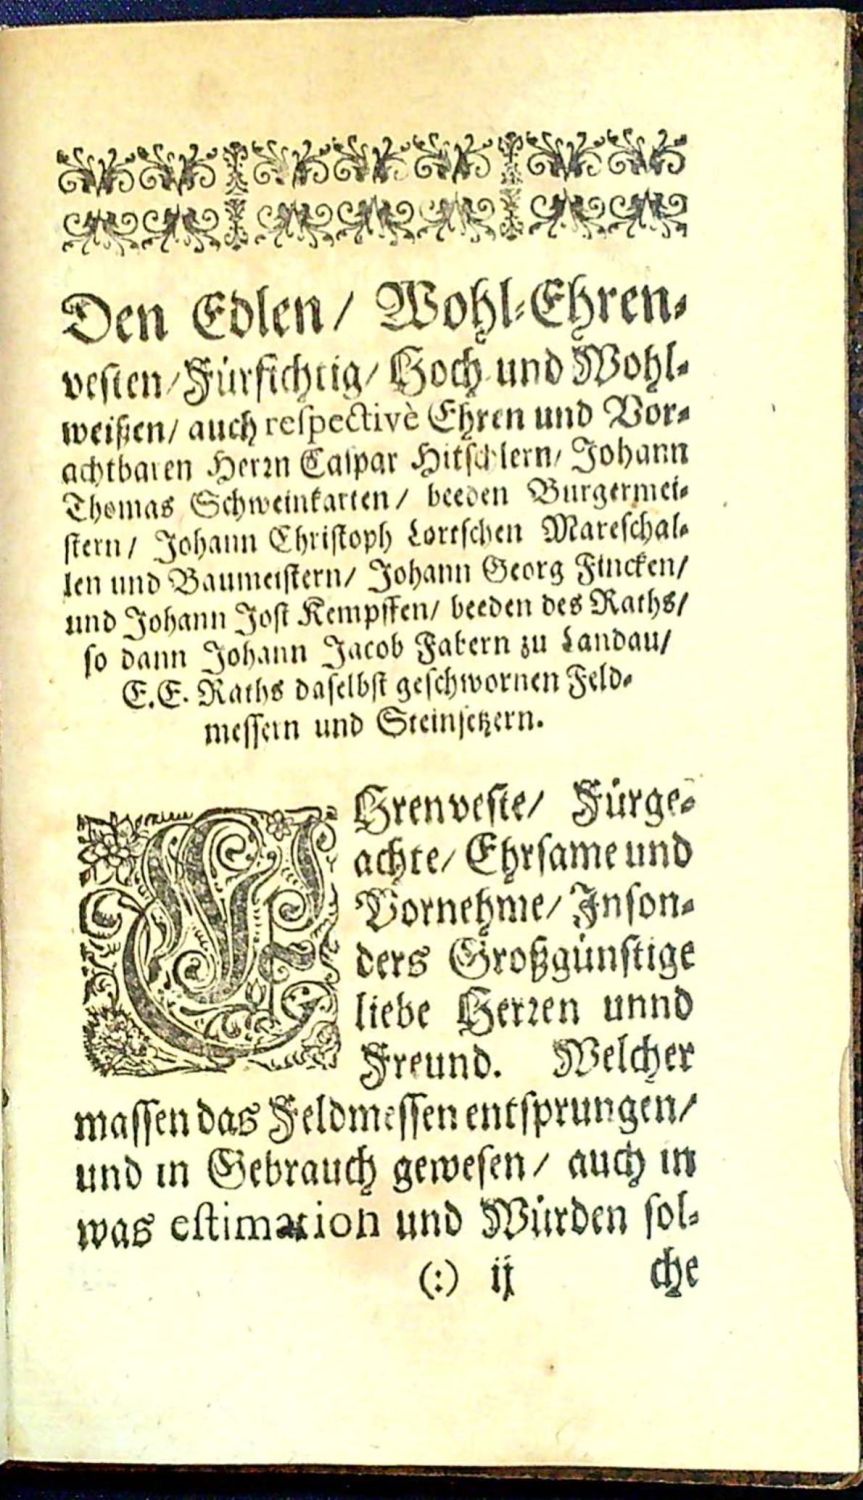 Den Edlen / Wohl-Ehren-
vesten / Fürsichtig / Hoch und Wohl-
weisen / auch respectivè Ehren und Vor-
achtbaren Herrn Caspar Hitschlern / Johann
Thomas Schweinkarten / beeden Burgermei-
stern / Johann Christoph Lortschen Mareschal-
len und Baumeistern / Johann Georg Fincken /
und Johann Jost Kempffen / beeden des Raths /
so dann Johann Jacob Fabern zu Landau /
E.E. Raths daselbst geschwornen Feld-
messern und Steinsetzern.
EHrenveste / Fürge-
achte / Ehrsame und
Vornehme / Inson-
ders Großgünstige
liebe Herren unnd
Freund. Welcher
massen das Feldmessen entsprungen /
und in Gebrauch gewesen / auch in
was estimation und Würden sol-
(:) ij che